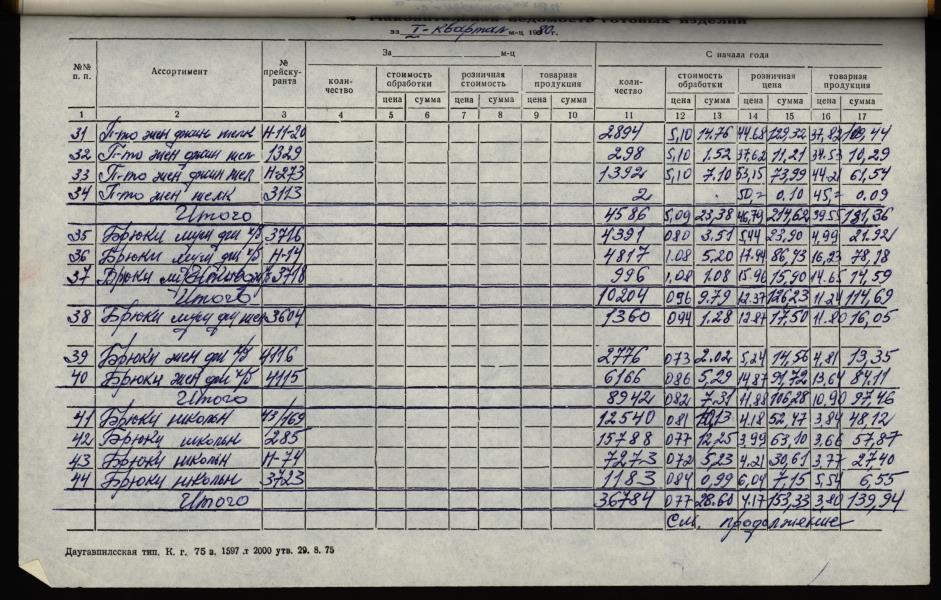 Накопительная ведомость готовых изделий
за I-квартал м-ц 1980 г.
№№ п. п. Ассортимент № прейскуранта За м-ц С начала года
количество стоимость обработки розничная стоимость товарная продукция количество стоимость обработки розничная цена товарная продукция
цена сумма цена сумма цена сумма цена сумма цена сумма цена сумма
1 2 3 4 5 6 7 8 9 10 11 12 13 14 15 16 17
31 П-то жен джин шелк Н-11-20 2894 5,10 14.76 44.68 129,32 37,82 109,44
32 П-то жен джин шел 1329 298 5,10 1.52 37,62 11,21 34.53 10,29
33 П-то жен джин шел Н-273 1392 5,10 7.10 53,15 73,99 44.21 61,54
34 П-то жен шелк 3113 2 50,= 0.10 45,= 0.09
Итого 4586 5,09 23,38 46,79 214,62 39.55 181,36
35 Брюки муж дж х/б 3716 4391 080 3.51 5,44 23,90 4,99 21.92
36 Брюки муж дж х/б Н-14 4817 1.08 5.20 17.94 86,43 16,23 78,18
37 Брюки 3718 996 1,08 1.08 15,96 15,90 14.65 14,59
Итого 10204 096 9.79 12.37 126,23 11.24 114,69
38 Брюки муж дж шел 3604 1360 094 1.28 12.87 17,50 11.80 16,05
39 Брюки жен дж х/б 4116 2776 073 2.02 5,24 14,56 4,81 13,35
40 Брюки жен дж х/б 4115 6166 086 5,29 14,87 91,72 13,64 84,11
Итого 8942 082 7.31 11.88 106,28 10,90 97,46
41 Брюки школьн 43/469 12540 081 10,13 4.18 52,47 3,84 48,12
42 Брюки школьн 285 15788 077 12,25 3,99 63,10 3,66 57,87
43 Брюки школьн Н-74 7273 072 5,23 4.21 30,61 3,77 27,40
44 Брюки школьн 3723 1183 084 0,99 6,04 7,15 5,54 6,55
Итого 36784 077 28.60 4.17 153,33 3,80 139,94
См. продолжение
Даугавпилсская тип. К. г. 75 з. 1597 .т 2000 утв. 29. 8. 75